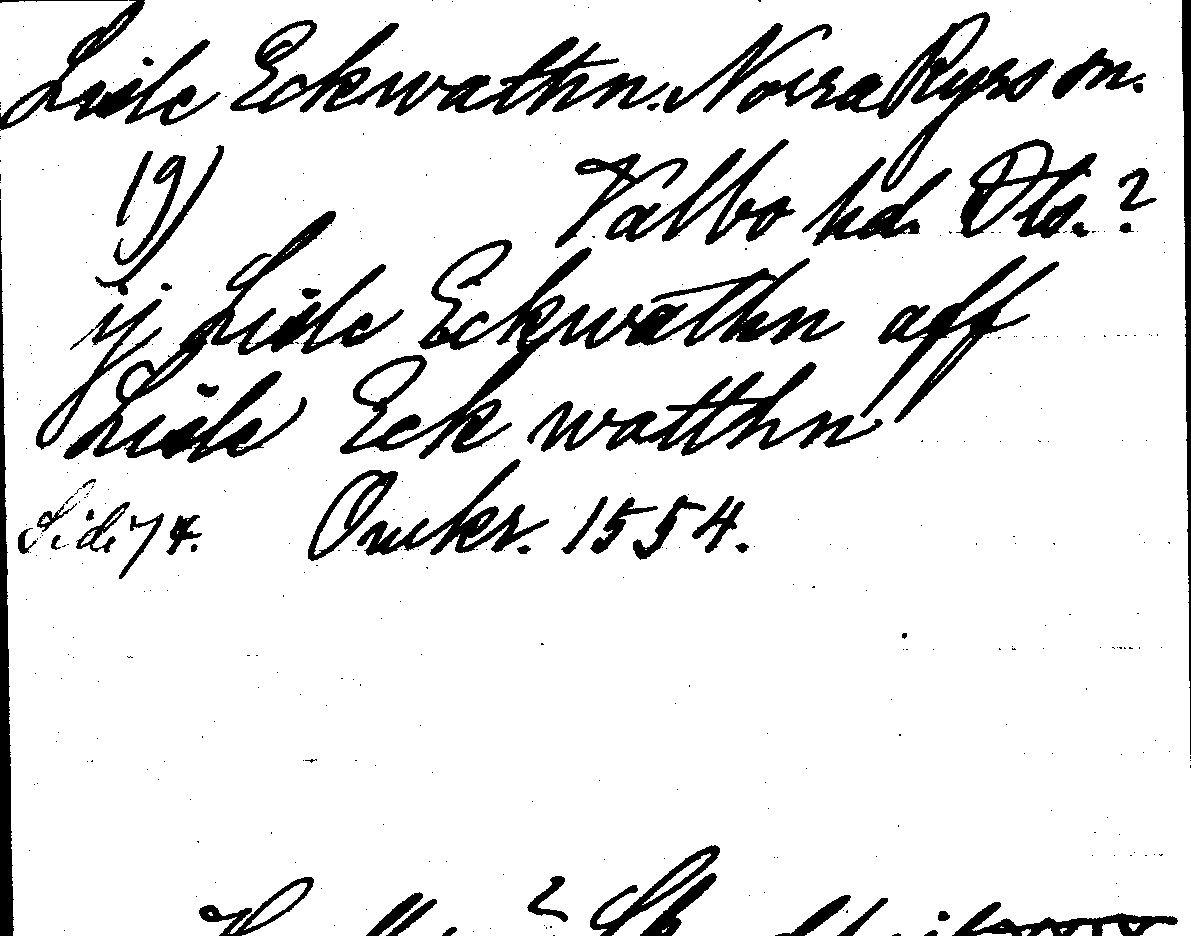 Lisle Eckwathn. Norra Ryrs sn.
19) Valbo hd. Dls.?
ij Lisle Eckwathn aff
Lisle Eck watthn
Sid: 74. Omkr. 1554.